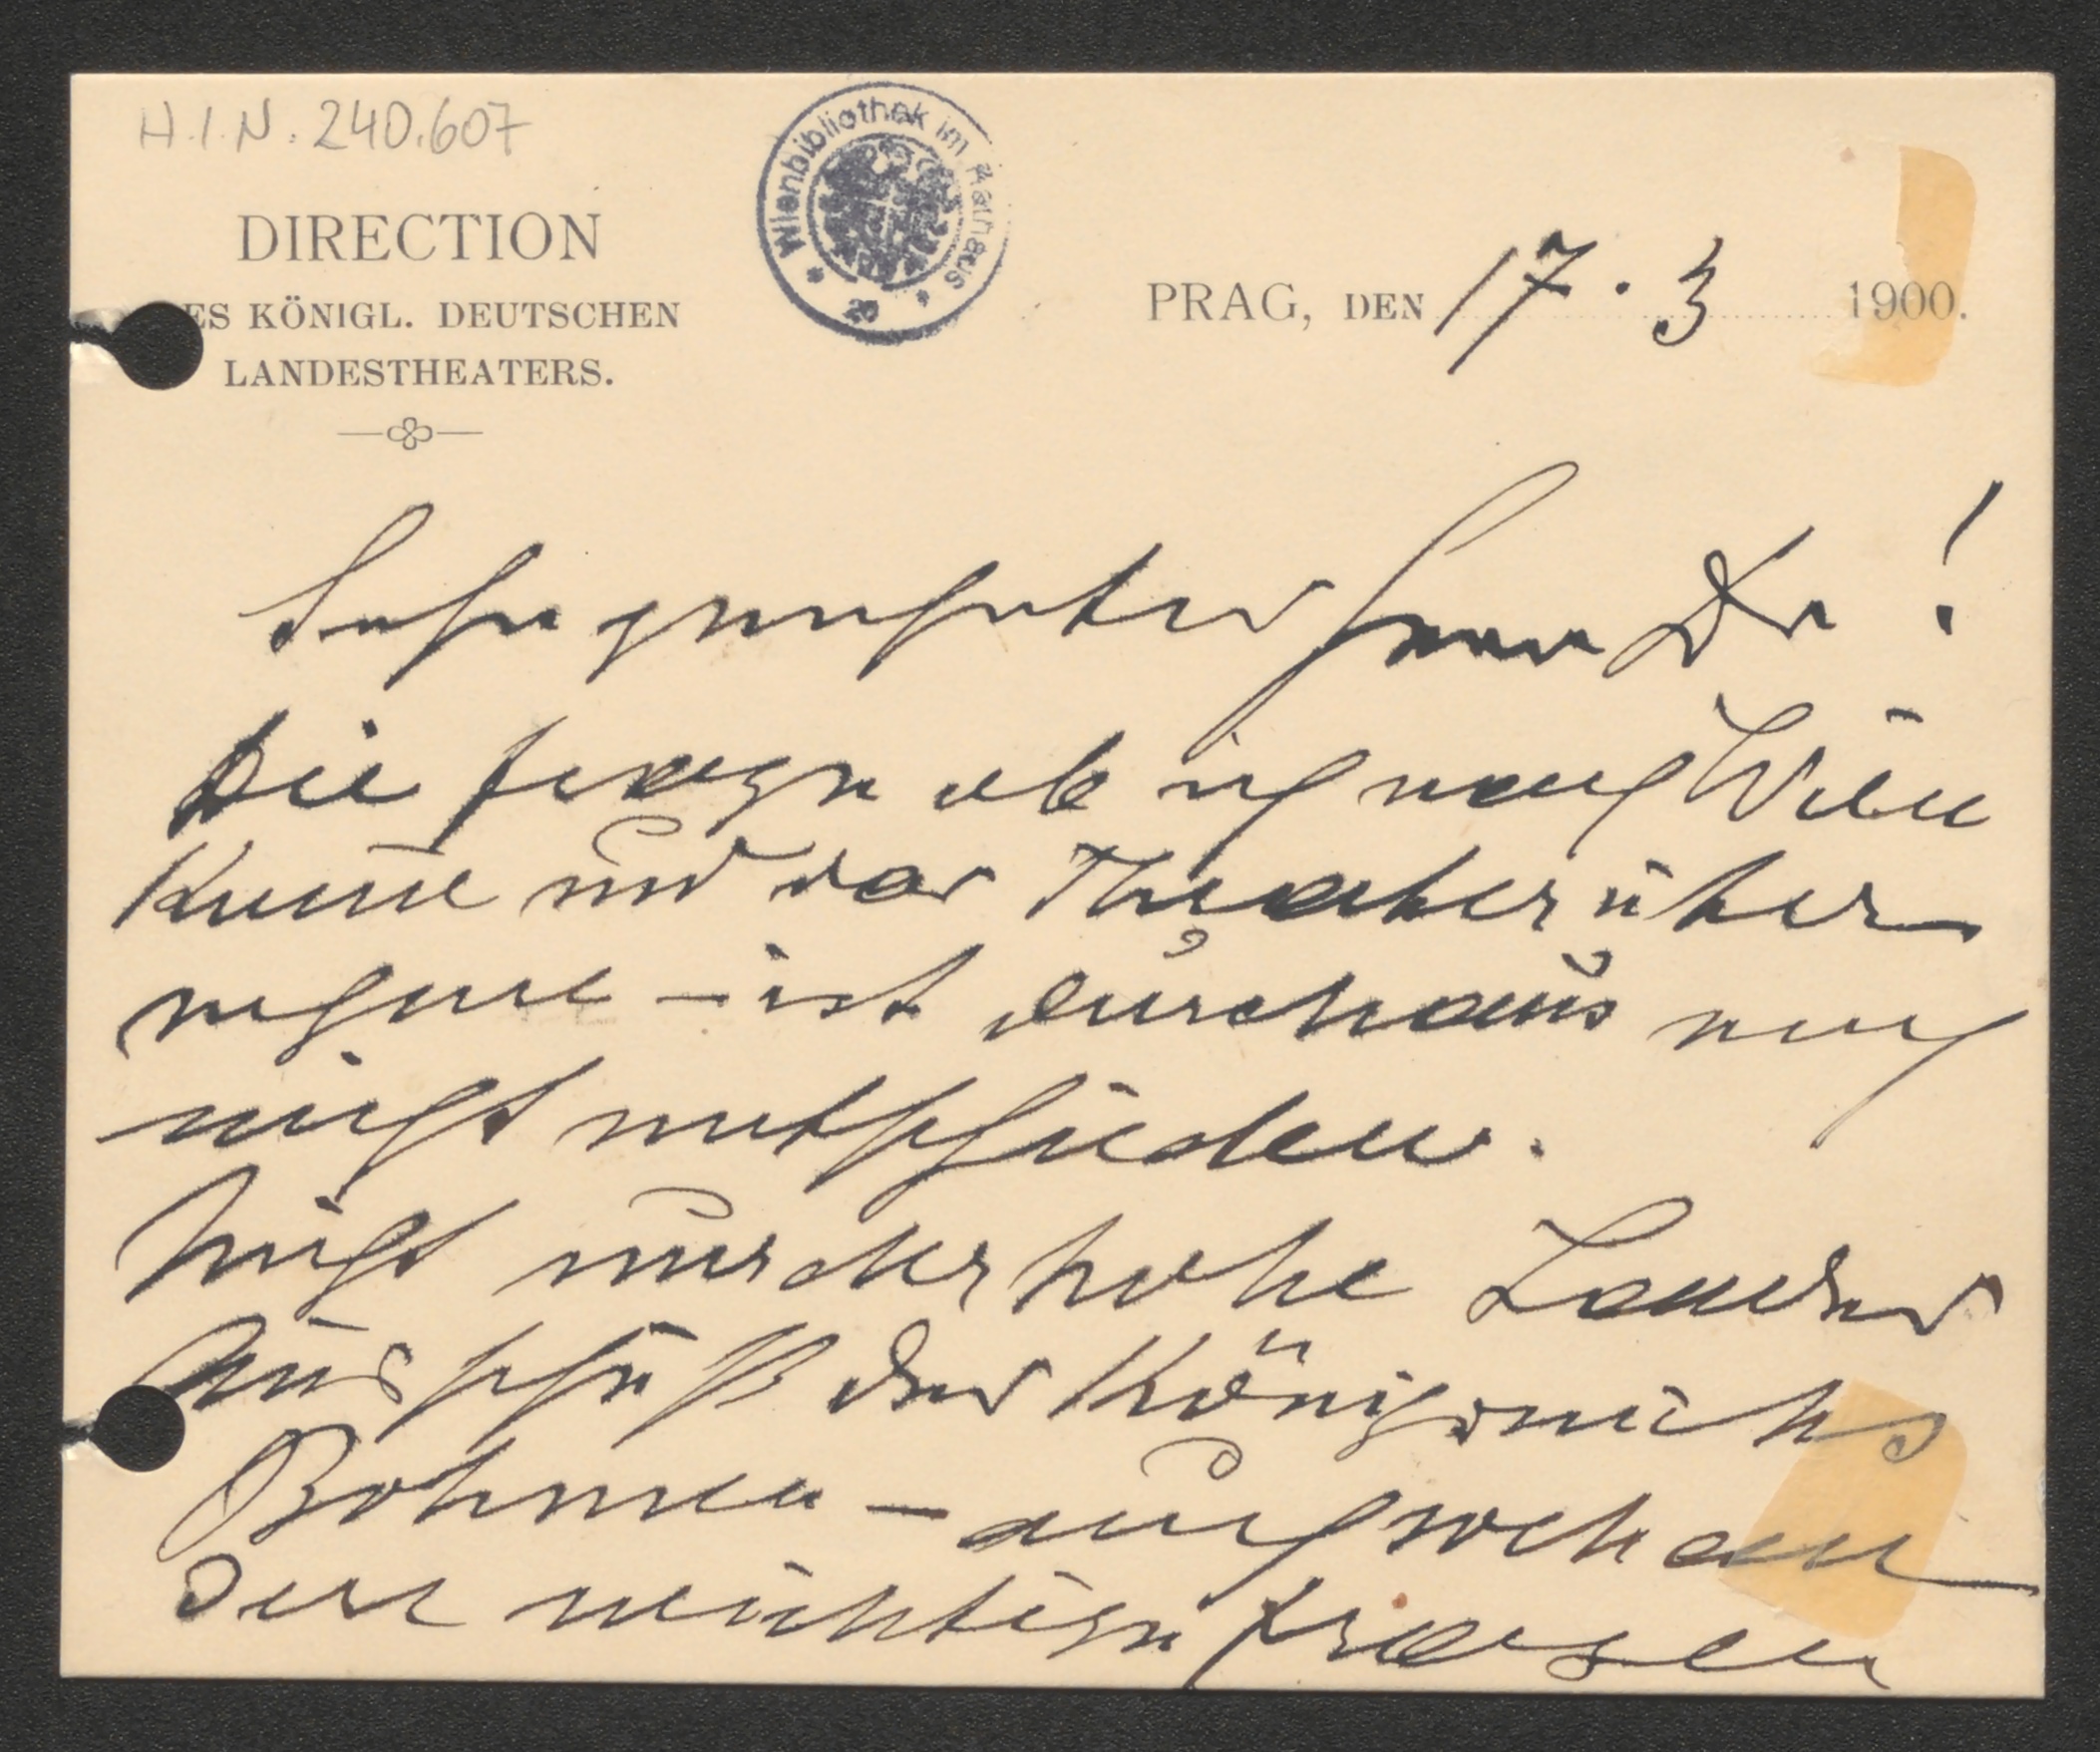 H.I.N. 240.607
Wienbibliothek im Rathaus
20
DIRECTION
ES KÖNIGL. DEUTSCHEN
LANDESTHEATERS.
PRAG, DEN 17. 3 1900.
Sehr geehrter Herr Dr!
Die Frage ob ich nach Wien
komme und das Theater über
nehme – ist durchaus noch
nicht entschieden.
Nicht nur der hohe Landes
Ausschuß des Königreichs
Böhmen – auch
wichtige Fragen